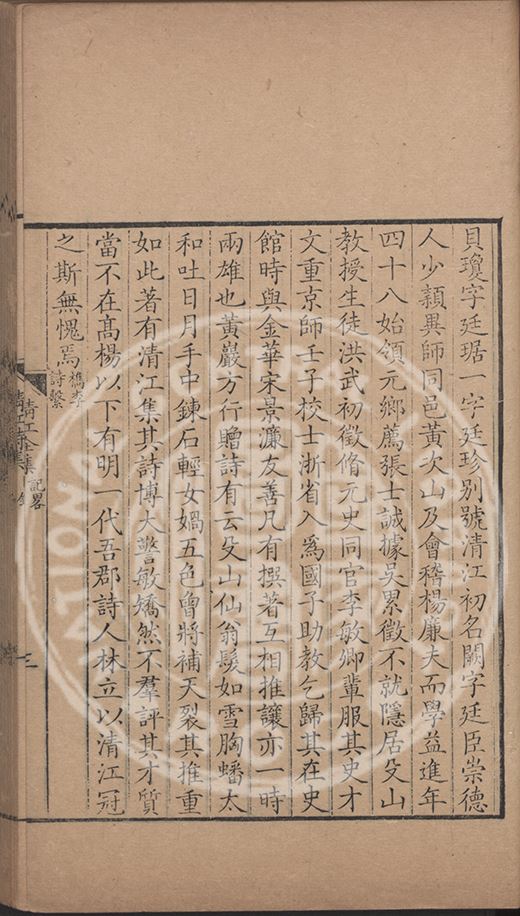 貝瓊字廷琚一字廷珍別號清江初名闕字廷臣崇德
人少穎異師同邑黃次山及會稽楊廉夫而學益進年
四十八始領元鄉薦張士誠據吳累徵不就隱居殳山
教授生徒洪武初徵脩元史同官李敏卿輩服其史才
文重京師壬子校士浙省入爲國子助教乞歸其在史
館時與金華宋景濂友善凡有撰著互相推讓亦一時
兩雄也黃巖方行贈詩有云殳山仙翁髮如雪胸蟠太
和吐日月手中鍊石輕女媧五色曾將補天裂其推重
如此著有清江集其詩博大警敏矯然不羣評其才質
當不在高楊以下有明一代吾郡詩人林立以清江冠
之斯無愧焉檇李詩繫
清江全集
記畧
三